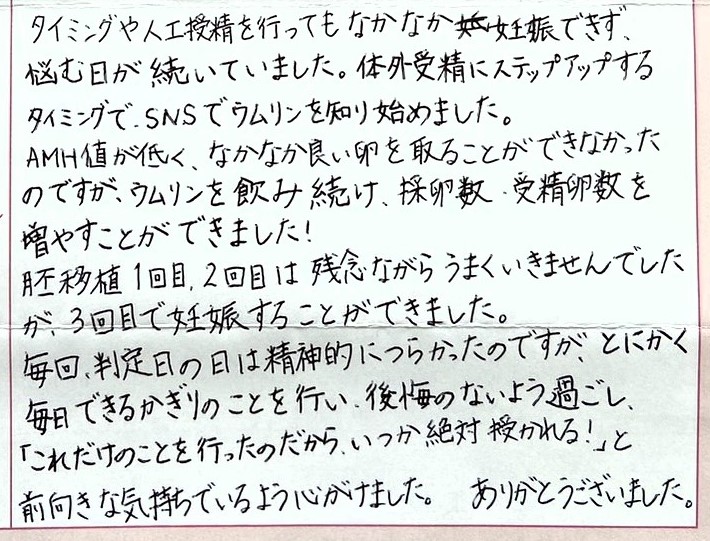 タイミングや人工授精を行ってもなかなか妊娠できず、
悩む日が続いていました。体外受精にステップアップする
タイミングで、SNSでウムリンを知り始めました。
AMH値が低く、なかなか良い卵を取ることができなかった
のですが、ウムリンを飲み続け、採卵数、受精卵数を
増やすことができました!
胚移植1回目、2回目は残念ながらうまくいきませんでした
が、3回目で妊娠することができました。
毎回、判定日の日は精神的につらかったのですが、とにかく
毎日できるかぎりのことを行い、後悔のないよう過ごし、
「これだけのことを行ったのだから、いつか絶対授かれる!」と
前向きな気持ちでいるよう心がけました。 ありがとうございました。